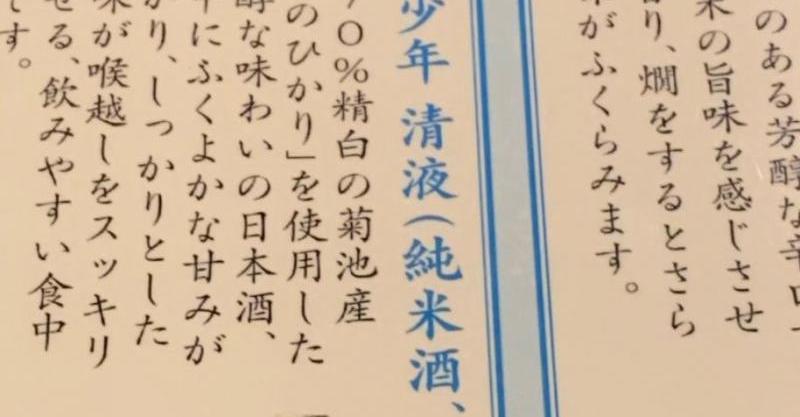 のある芳醇な辛口
米の旨味を感じさせ
り、燗をするとさら
がふくらみます。
少年 清液(純米酒、
70%精白の菊池産
のひかり」を使用した
醇な味わいの日本酒、
にふくよかな甘みが
かり、しっかりとした
味が喉越しをスッキリ
せる、飲みやすい食中
です。